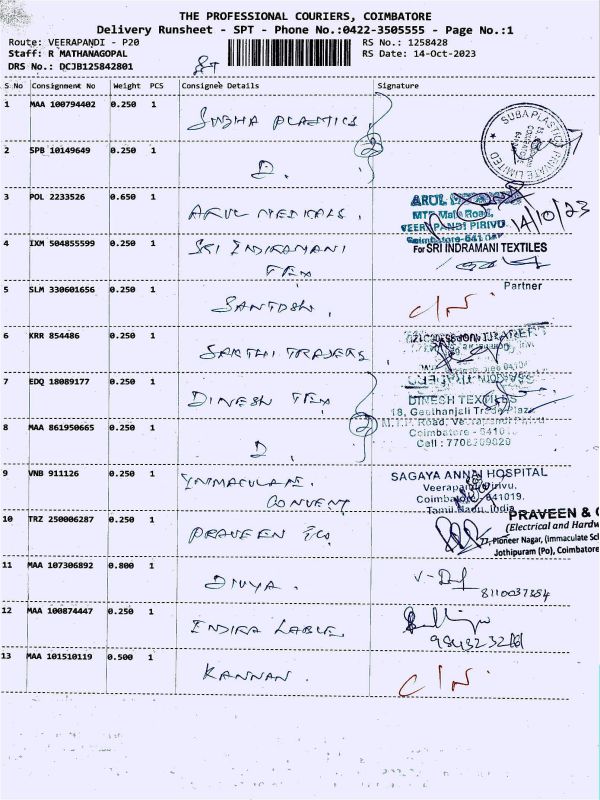 THE PROFESSIONAL COURIERS, COIMBATORE
Delivery Runsheet - SPT - Phone No.:0422-3505555 - Page No.:1
Route: VEERAPANDI - P20 RS No.: 1258428
Staff: R MATHANAGOPAL RS Date: 14-Oct-2023
DRS No.: DCJB125842801
S No Consignment No Weight PCS Consignee Details Signature
1 MAA 100794402 0.250 1 SUBHA PLASTICS,
SUBA PLASTIC PRIVATE LIMITED
2 SPB 10149649 0.250 1 D.
2
3 POL 2233526 0.650 1 ARUL MEDICALS,
ARUL
MTP Main Road,
VEERAPANDI PIRIVU
Coimbatore-641
14/10/23
4 IXM 504855599 0.250 1 SRI INDIRAMANI
TEX
For SRI INDRAMANI TEXTILES
Partner
5 SLM 330601656 0.250 1 SANTOSH, C/N.
6 KRR 854486 0.250 1 SAKTHI TRADERS,
7 EDQ 18089177 0.250 1 DINESH TEX
DINESH TEXTILES
18, Geethanjali Trade Plaza
M.T.P. Road, Veerapandi Pirivu
Coimbatore - 641019
Cell : 7708209820
8 MAA 861950665 1 D.
2
9 VNB 911126 0.250 1 YNMACULAN.
CONVENT
SAGAYA ANNAI HOSPITAL
Veerapandi Pirivu,
Coimbatore 641019.
Tamil Nadu, India
10 TRZ 250006287 0.250 1 PRAVEEN &Co,
PRAVEEN & C
(Electrical and Hardw
77, Pioneer Nagar, (Immaculate Sch
Jothipuram (Po), Coimbatore
11 MAA 107306892 0.800 1 DIVYA.
8110037354
12 MAA 100874447 0.250 1 INDIRA LABLE,
13 MAA 101510119 0.500 1 KANNAN. C/N.